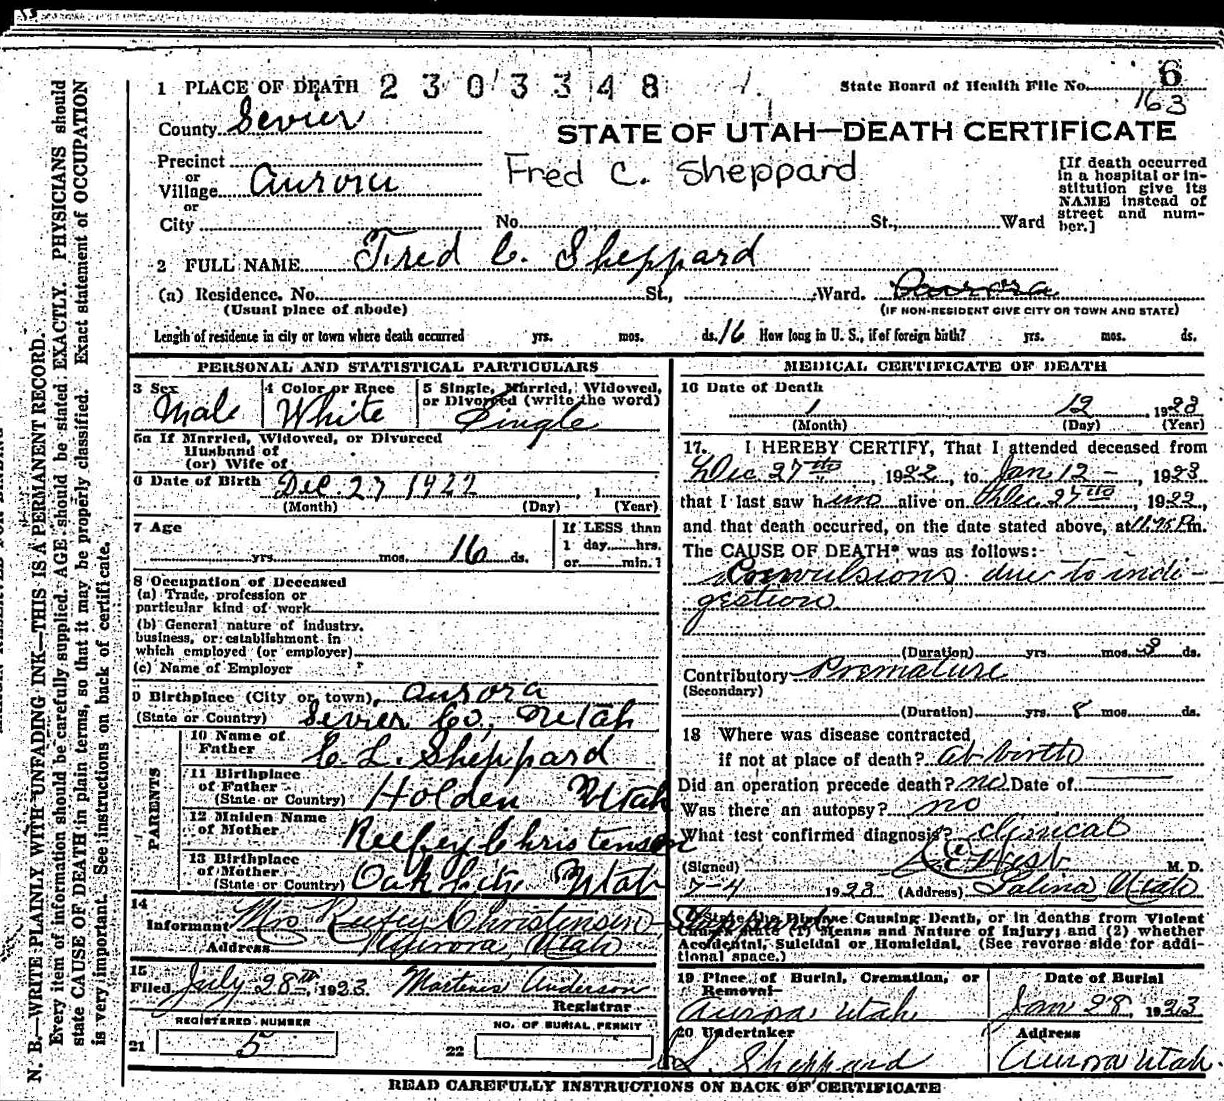 1 PLACE OF DEATH 2303348
State Board of Health File No. 6
163
County Sevier
STATE OF UTAH—DEATH CERTIFICATE
Precinct
or
Village Aurora
Fred C. Sheppard
[If death occurred
in a hospital or in-
stitution give its
NAME instead of
street and num-
ber.]
or
City No. St., Ward
2 FULL NAME Fred C. Sheppard
(a) Residence. No. St., Ward. Aurora
(Usual place of abode) (IF NON-RESIDENT GIVE CITY OR TOWN AND STATE)
Length of residence in city or town where death occurred yrs. mos. ds. 16 How long in U. S., if of foreign birth? yrs. mos. ds.
PERSONAL AND STATISTICAL PARTICULARS
3 Sex
Male
4 Color or Race
White
5 Single, Married, Widowed,
or Divorced (write the word)
Single
5a If Married, Widowed, or Divorced
Husband of
(or) Wife of
6 Date of Birth Dec 27 1922, 1
(Month) (Day) (Year)
7 Age
yrs. mos. 16 ds.
If LESS than
1 day hrs.
or min.?
8 Occupation of Deceased
(a) Trade, profession or
particular kind of work
(b) General nature of industry,
business, or establishment in
which employed (or employer)
(c) Name of Employer
9 Birthplace (City or town), Aurora
(State or Country) Sevier Co, Utah
PARENTS
10 Name of
Father C. L. Sheppard
11 Birthplace
of Father
(State or Country) Holden Utah
12 Maiden Name
of Mother Reefey Christensen
13 Birthplace
of Mother
(State or Country) Oak City Utah
14
Informant Mrs Reefey Christensen Sheppard
Address Aurora, Utah
15
Filed July 28th 1923 Martinus Anderson
Registrar
REGISTERED NUMBER
21 5
NO. OF BURIAL PERMIT
22
MEDICAL CERTIFICATE OF DEATH
16 Date of Death
1 12, 1923
(Month) (Day) (Year)
17. I HEREBY CERTIFY, That I attended deceased from
Dec 27th, 1922, to Jan 12 -, 1923
that I last saw him alive on Dec 27th, 1922,
and that death occurred, on the date stated above, at m.
The CAUSE OF DEATH* was as follows:-
Convulsions due to indi-
gestion
(Duration) yrs. mos. 8 ds.
Contributory Premature
(Secondary)
(Duration) yrs. 8 mos. ds.
18 Where was disease contracted
if not at place of death? at birth
Did an operation precede death? no Date of
Was there an autopsy? no
What test confirmed diagnosis? clinical
(Signed) West M. D.
7-4 1923 (Address) Salina Utah
*State the Disease Causing Death, or in deaths from Violent
Causes, (1) Means and Nature of Injury; and (2) whether
Accidental, Suicidal or Homicidal. (See reverse side for addi-
tional space.)
19 Place of Burial, Cremation, or
Removal
Aurora Utah
Date of Burial
Jan 28, 1923
20 Undertaker
L. Sheppard
Address
Aurora Utah
READ CAREFULLY INSTRUCTIONS ON BACK OF CERTIFICATE
N. B.—WRITE PLAINLY, WITH UNFADING INK—THIS IS A PERMANENT RECORD.
Every item of information should be carefully supplied. AGE should be stated EXACTLY. PHYSICIANS should
state CAUSE OF DEATH in plain terms, so that it may be properly classified. Exact statement of OCCUPATION
is very important. See instructions on back of certificate.